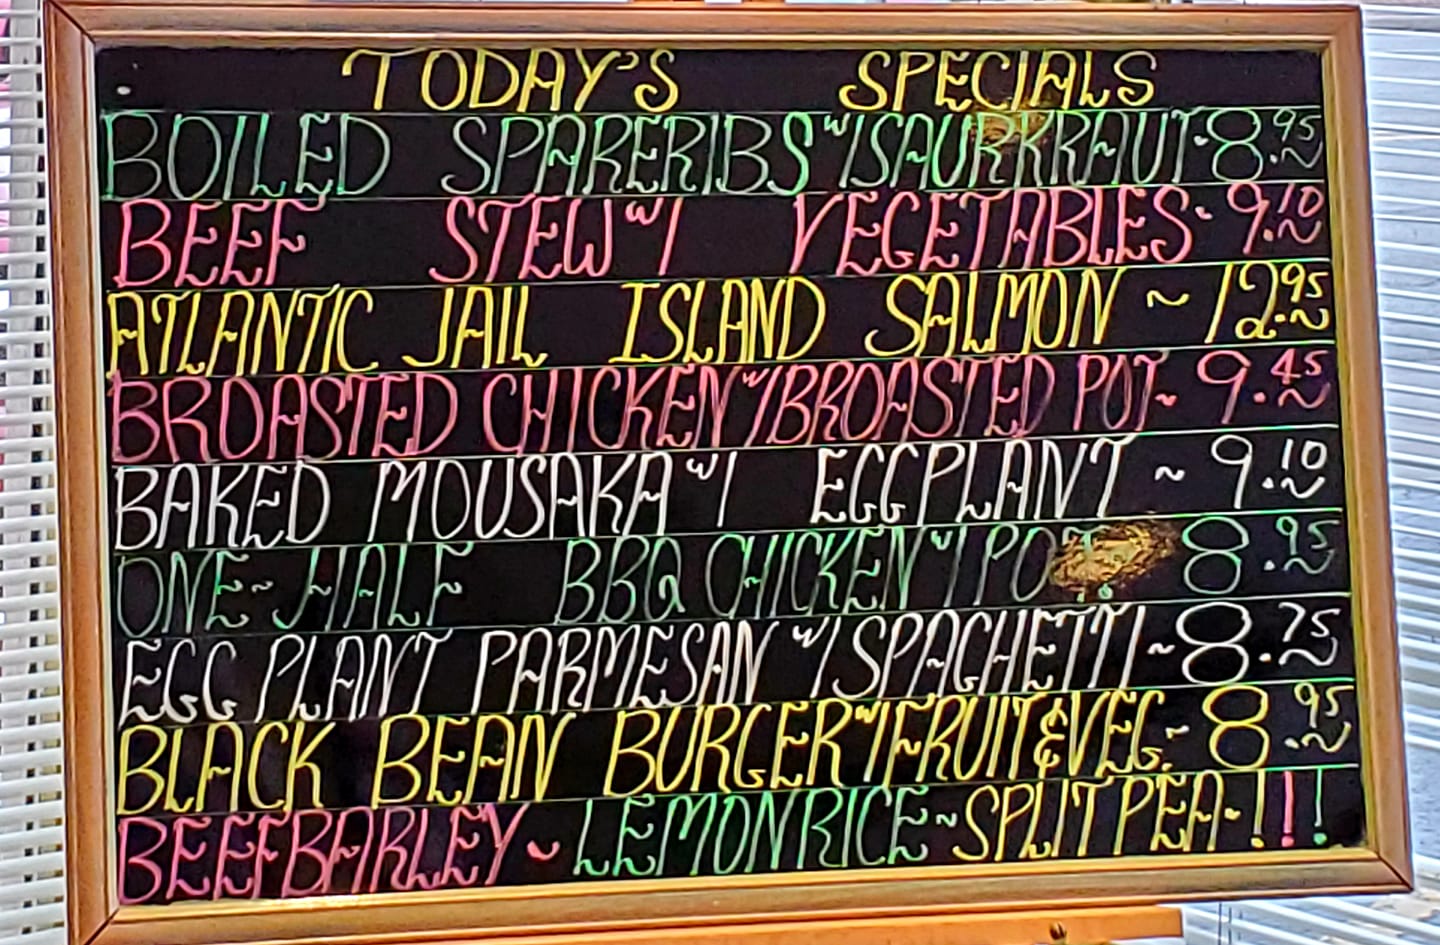 TODAY'S SPECIALS
BOILED SPARERIBS "W/SAURKRAUT - 8.95
BEEF STEW "W/ VEGETABLES - 9.10
ATLANTIC JAIL ISLAND SALMON ~ 12.95
BROASTED CHICKEN "W/BROASTED POT ~ 9.45
BAKED MOUSAKA "W/ EGGPLANT ~ 9.10
ONE-HALF BBQ CHICKEN "W/ POT. 8.95
EGG PLANT PARMESAN "W/SPAGHETTI ~ 8.75
BLACK BEAN BURGER "W/FRUIT & VEG. - 8.95
BEEFBARLEY ~ LEMONRICE ~ SPLIT PEA - !!!